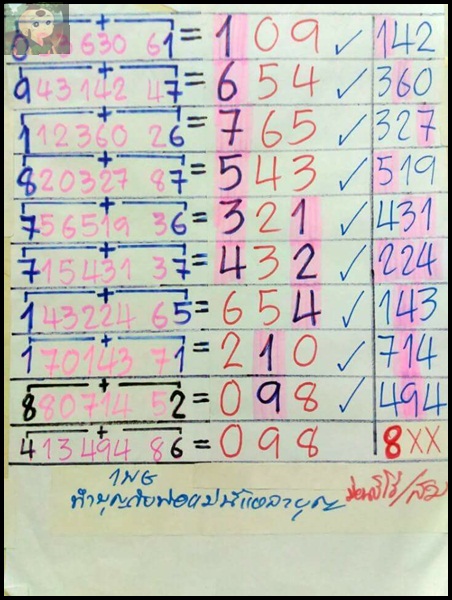 +
630 61 = 109 ✓ 142
+
943142 47 = 654 ✓ 360
+
112360 26 = 765 ✓ 327
+
820327 87 = 543 ✓ 519
+
756519 36 = 321 ✓ 431
+
715431 37 = 432 ✓ 224
+
143224 65 = 654 ✓ 143
+
170143 71 = 210 ✓ 714
+
880714 52 = 098 ✓ 494
+
413494 86 = 098 8XX